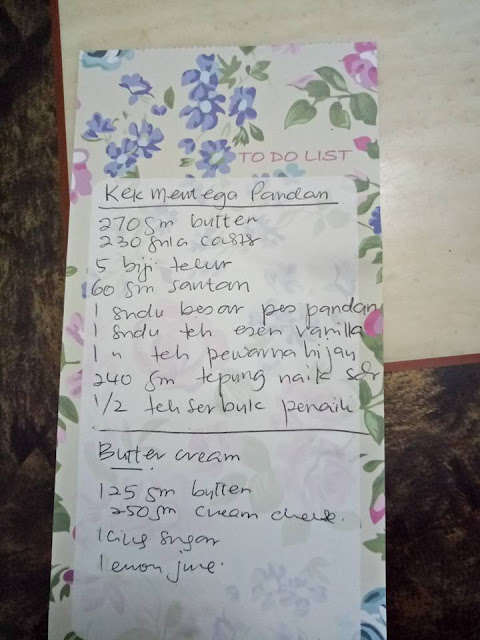 TO DO LIST
Kek Mentega Pandan
270 gm butter
230 gula castr
5 biji telur
60 gm santan
1 sudu besar pes pandan
1 sudu teh esen vanilla
1 " teh pewarna hijau
240 gm tepung naik sdr
1/2 teh serbuk penaik
Butter cream
125 gm butter
250 gm cream cheese.
Icing sugar
lemon juice.